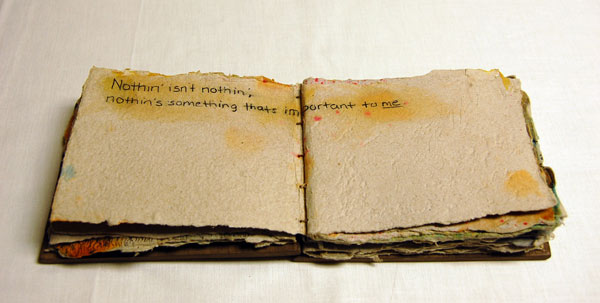 Nothin' isnt nothin';
nothin's something thats important to me.